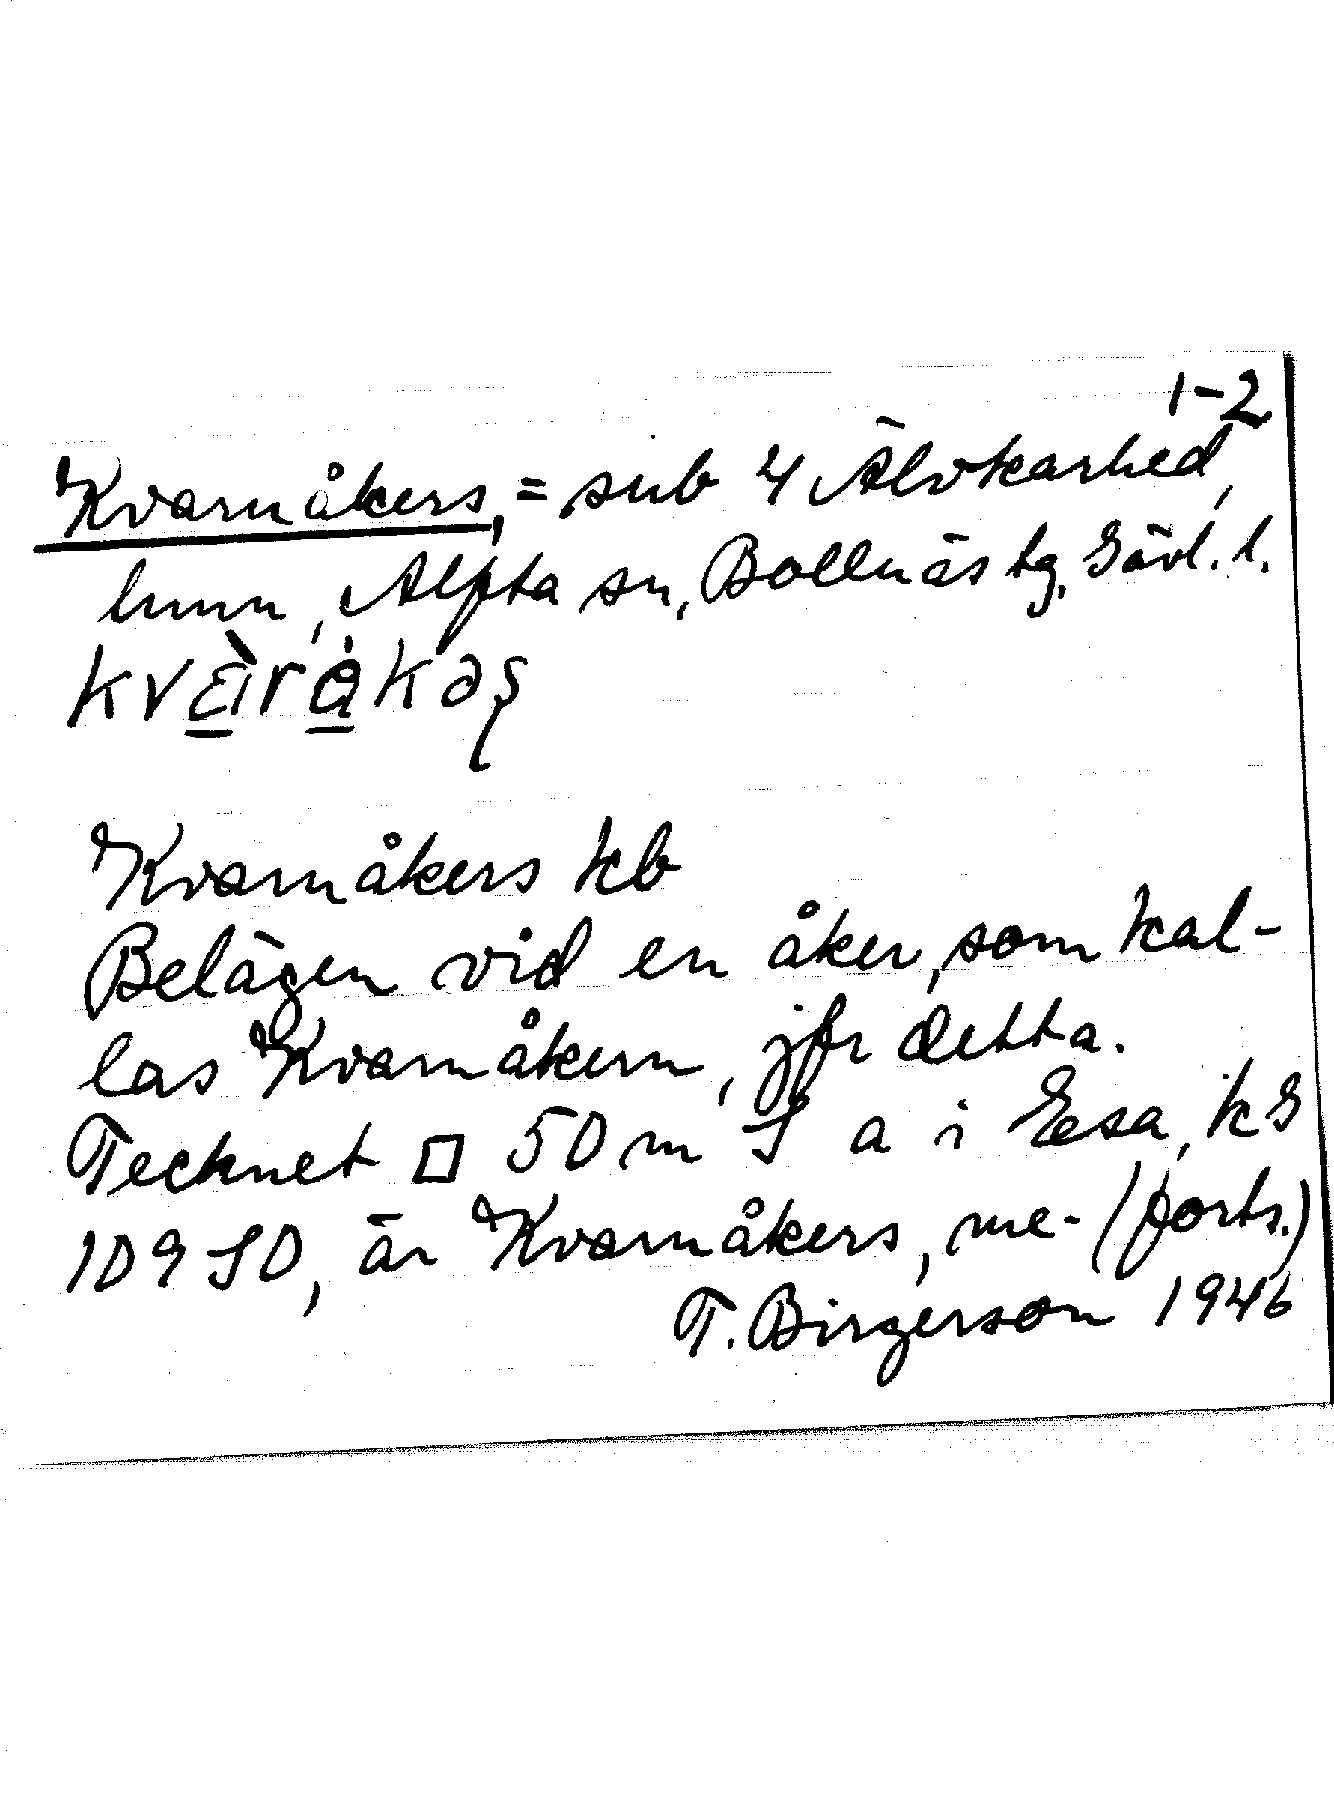 1-2
Kvarnåkers, = sub 4 Älvkarhed,
hmn, Alfta sn, Bollnäs tg, Gävl. l.
Kvarnåkers kb
Belägen vid en åker, som kal-
las Kvarnåkern, jfr detta.
Tecknet □ 50 m S a i Eesa, kG
109 SO, är Kvarnåkers, me- (forts.)
T. Birgerson 1946